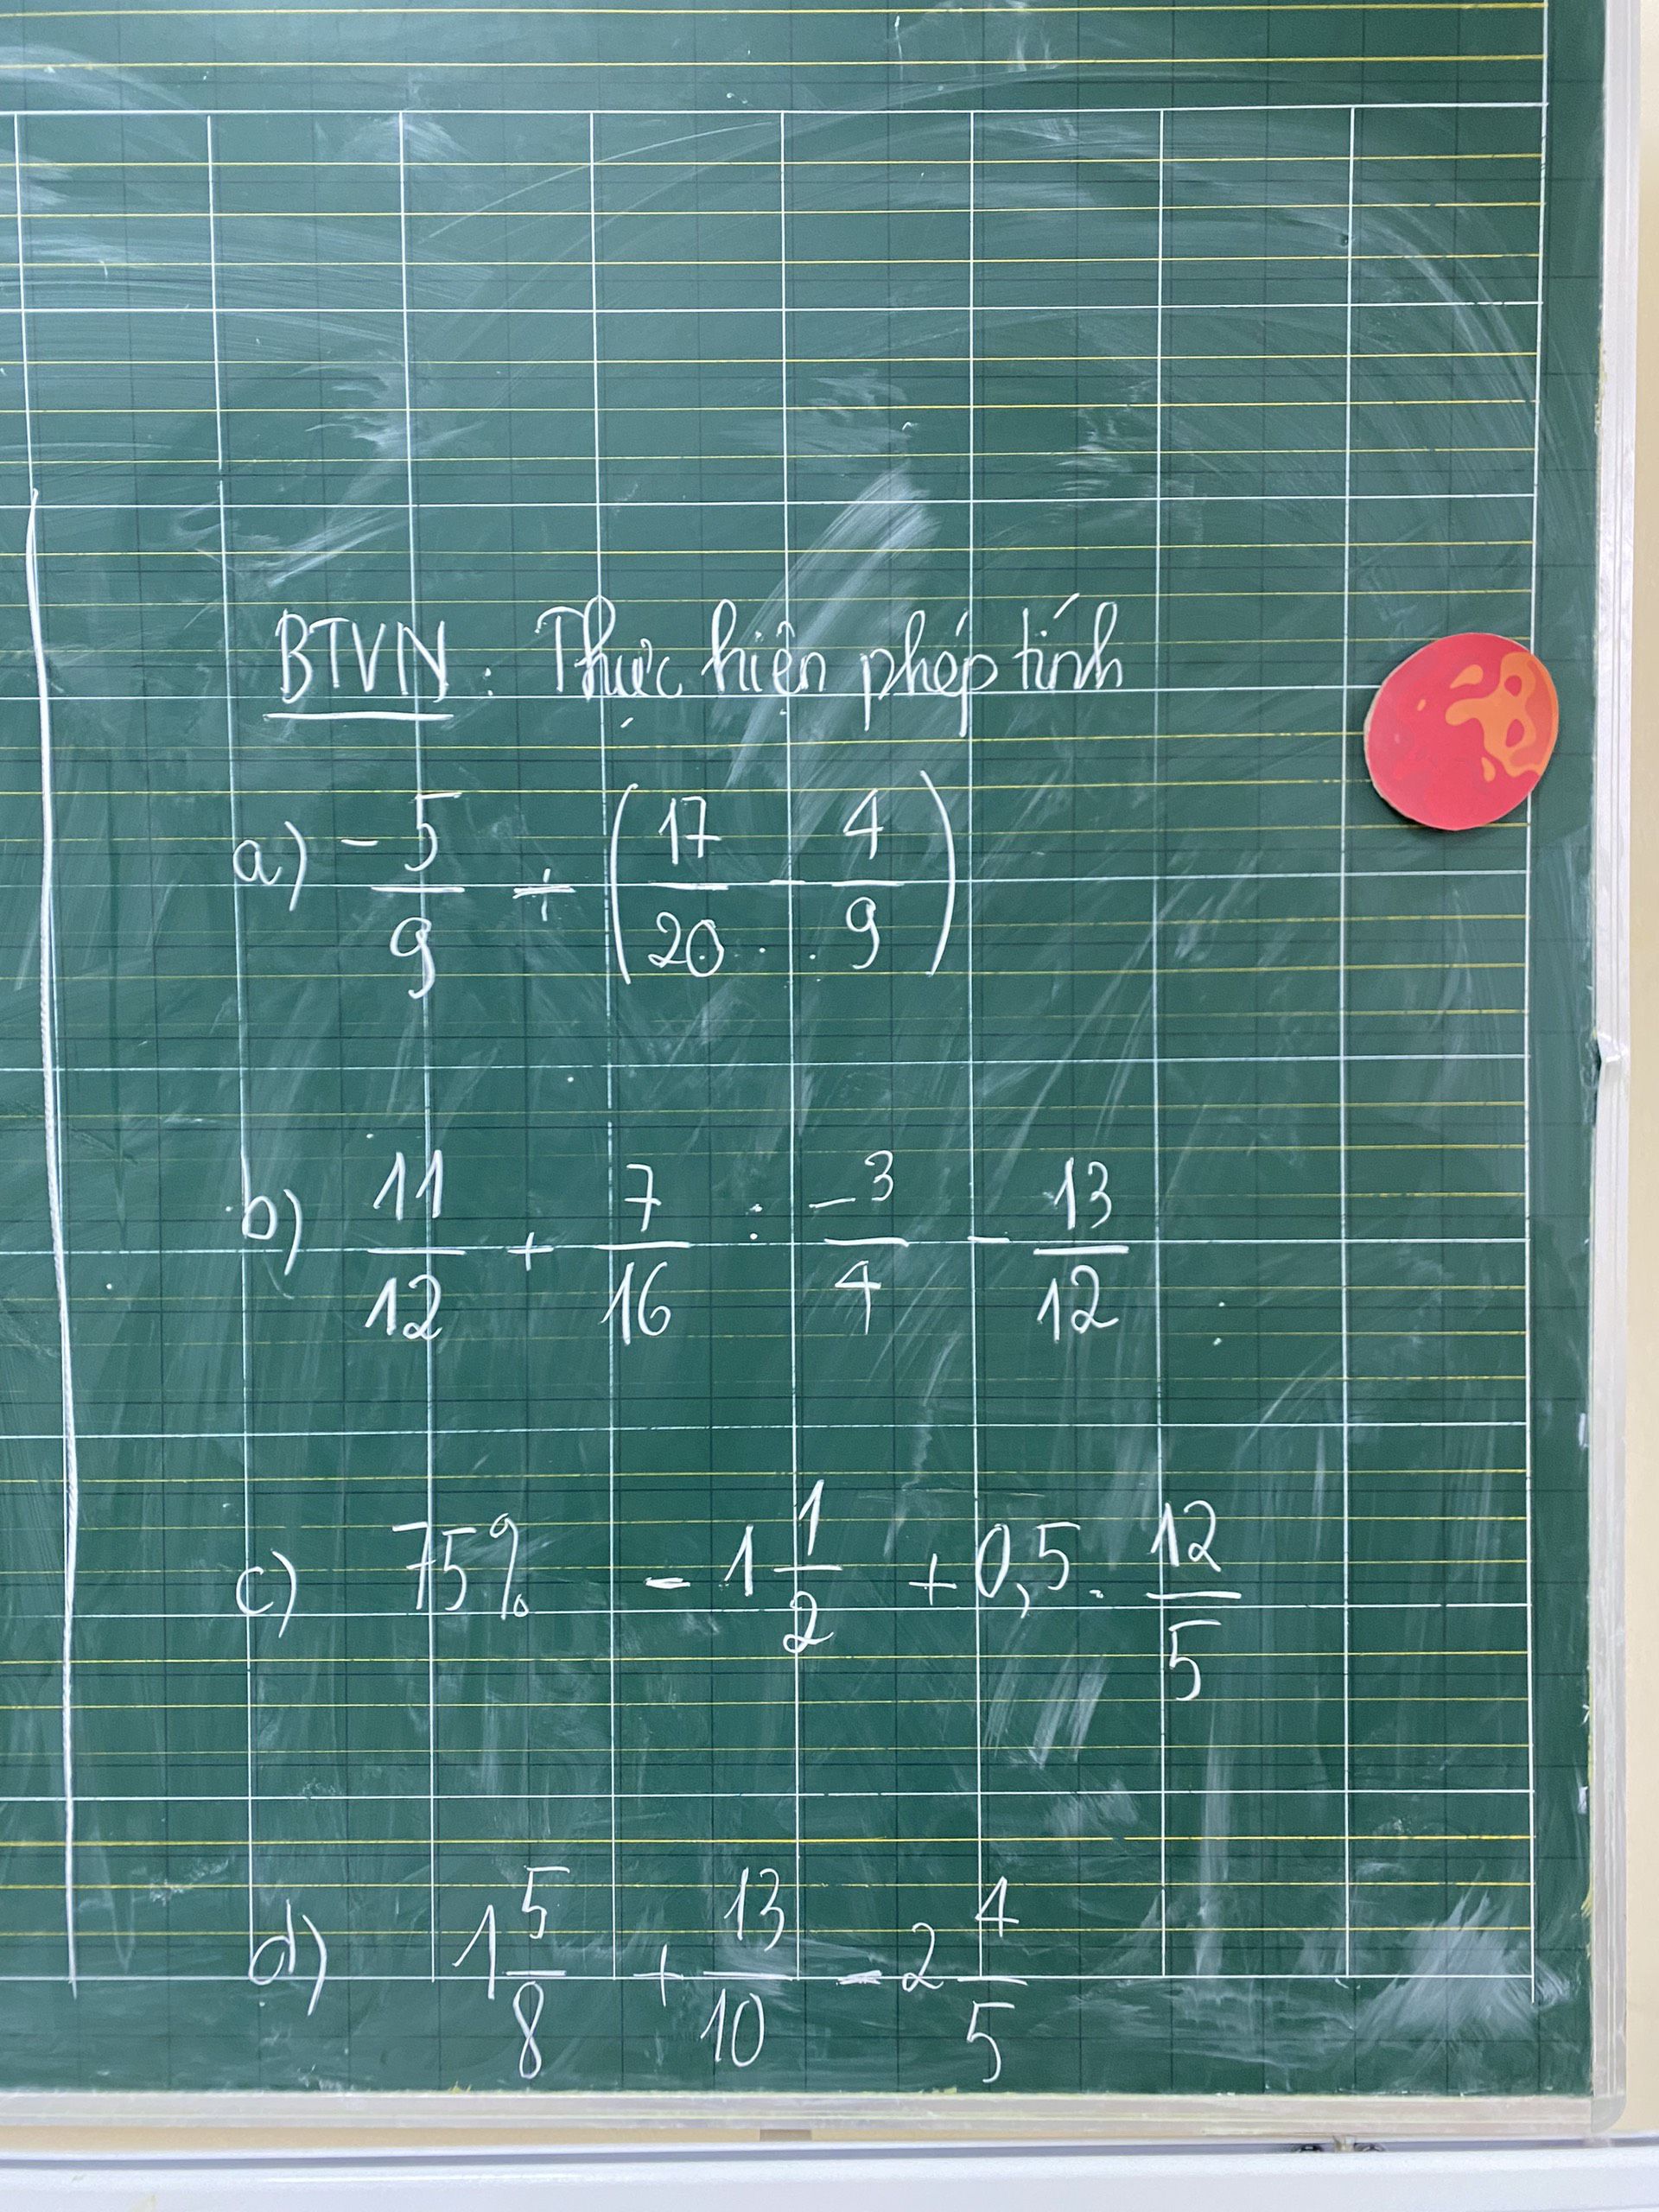 BTVN : Thực hiện phép tính
a) -5/9 + (17/20 - 4/9)
b) 11/12 + 7/16 : -3/4 - 13/12
c) 75% - 1 1/2 + 0,5 . 12/5
d) 1 5/8 + 13/10 - 2 4/5